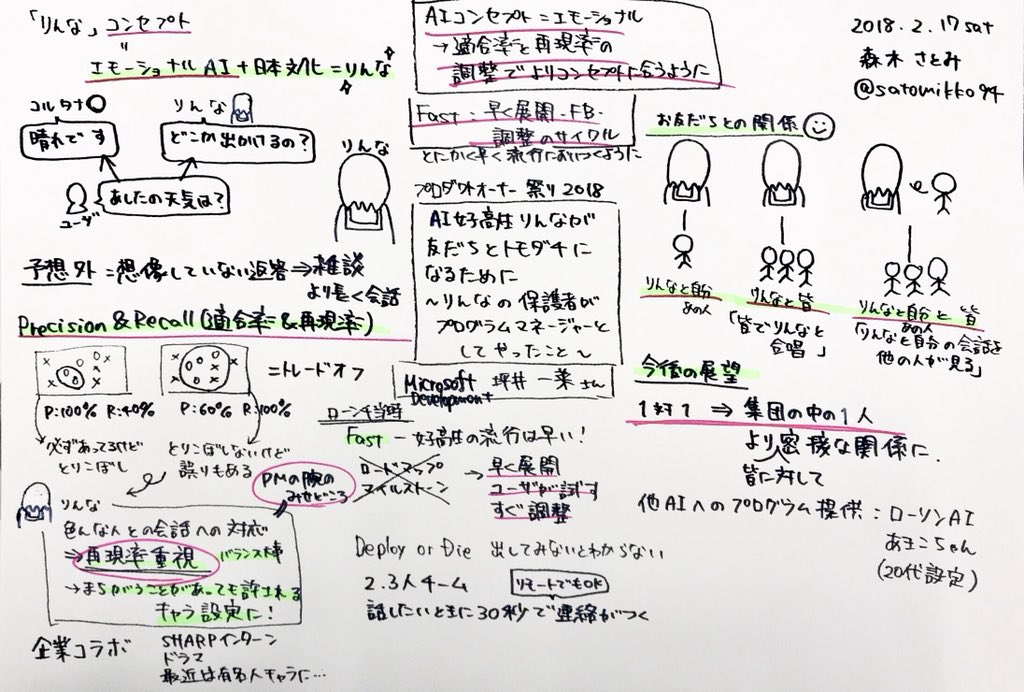 「りんな」コンセプト
=
エモーショナルAI+日本文化=りんな
コルタナ
晴れです
りんな
どこか出かけるの?
ユーザ
あしたの天気は?
りんな
予想外=想像していない返答⇒雑談
より長く会話
Precision&Recall(適合率&再現率)
P:100% R:40%
P:60% R:100%
=トレードオフ
必ずあってるけど
とりこぼし
とりこぼしないけど
誤りもある
PMの腕の
みせどころ
りんな
色んな人との会話への対応
⇒再現率重視 バランス大事
→まちがうことがあっても許される
キャラ設定に!
企業コラボ
SHARPインターン
ドラマ
最近は有名人キャラに…
AIコンセプト=エモーショナル
→適合率と再現率の
調整でよりコンセプトに合うように
Fast:早く展開-FB-
調整のサイクル
とにかく早く流行においつくように
プロダクトオーナー祭り2018
AI女子高生りんなが
友だちとトモダチに
なるために
~りんなの保護者が
プログラムマネージャーと
してやったこと~
Microsoft
Development
坪井 一菜さん
ローンチ当時
Fast-女子高生の流行は早い!
ロードマップ
マイルストーン
→早く展開
ユーザが試す
すぐ調整
Deploy or Die 出してみないとわからない
2.3人チーム
リモートでもOK
話したいときに30秒で連絡がつく
2018.2.17sat
森木さとみ
@satomikko94
お友だちとの関係
りんなと自分
あの人
りんなと皆
「皆でりんなと
合唱」
りんなと自分と皆
あの人
「りんなと自分の会話を
他の人が見る」
今後の展望
1対1⇒集団の中の1人
より密接な関係に.
皆に対して
他AIへのプログラム提供:ローソンAI
あきこちゃん
(20代設定)